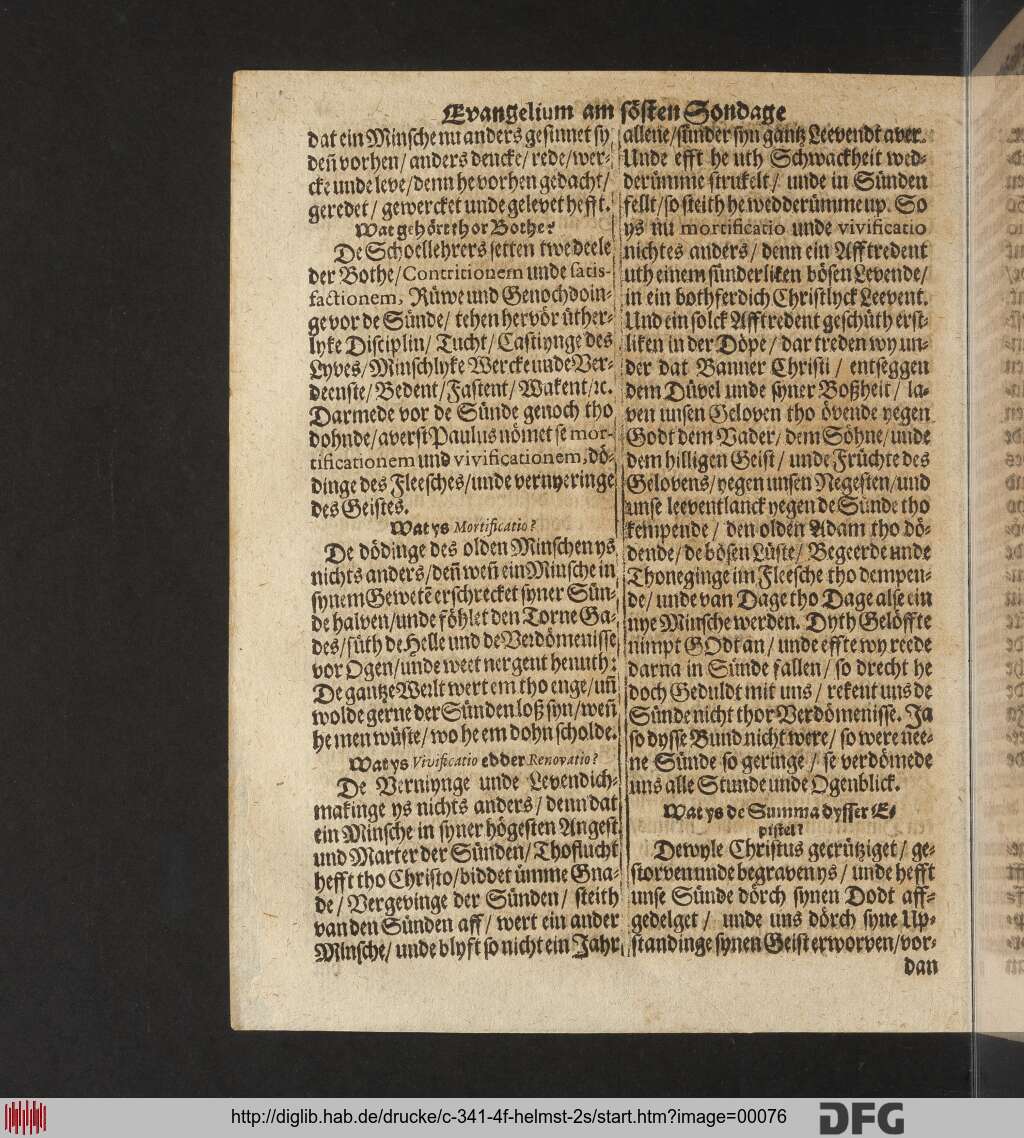 Evangelium am sösten Sondage
dat ein Minsche nu anders gesinnet sy
deñ vorhen / anders dencke / rede / wer-
cke unde leve / denn he vorhen gedacht /
geredet / gewercket unde gelevet hefft.
Wat gehört thor Bothe?
De Schoellehrers setten twe deele
der Bothe / Contritionem unde satis-
factionem, Rüwe und Genochdoin-
ge vor de Sünde / tehen hervör üther-
lyke Disciplin / Tucht / Castiynge des
Lyves / Minschlyke Wercke unde Ver-
deenste / Bedent / Fastent / Wakent / ꝛc.
Darmede vor de Sünde genoch tho
dohnde / averst Paulus nömet se mor-
tificationem und vivificationem, dö-
dinge des Fleesches / unde vernyeringe
des Geistes.
Wat ys Mortificatio?
De dödinge des olden Minschen ys
nichts anders / deñ weñ ein Minsche in
synem Gewetẽ erschrecket syner Sün-
de halven / unde föhlet den Torne Ga-
des / süth de Helle und de Verdömenisse
vor Ogen / unde weet nergent henuth:
De gantze Werlt wert em tho enge / uñ
wolde gerne der Sünden loß syn / weñ
he men wüste / wo he em dohn scholde.
Wat ys Vivificatio edder Renovatio?
De Verniynge unde Levendich-
makinge ys nichts anders / denn dat
ein Minsche in syner högesten Angest
und Marter der Sünden / Thoflucht
hefft tho Christo / biddet ümme Gna-
de / Vergevinge der Sünden / steith
van den Sünden aff / wert ein ander
Minsche / unde blyft so nicht ein Jahr
allene / sünder syn gantz Leevendt aver.
Unde efft he uth Schwackheit wed-
derümme strukelt / unde in Sünden
fellt / so steith he wedderümme up. So
ys nu mortificatio unde vivificatio
nichtes anders / denn ein Afftredent
uth einem sünderliken bösen Levende /
in ein bothferdich Christlyck Leevent.
Und ein solck Afftredent geschüth erst-
liken in der Döpe / dar treden wy un-
der dat Banner Christi / entseggen
dem Düvel unde syner Boßheit / la-
ven unsen Geloven tho övende yegen
Godt dem Vader / dem Söhne / unde
dem hilligen Geist / unde Früchte des
Gelovens / yegen unsen Negesten / und
unse leeventlanck yegen de Sünde tho
kempende / den olden Adam tho dö-
dende / de bösen Lüste / Begeerde unde
Thoneginge im Fleesche tho dempen-
de / unde van Dage tho Dage alse ein
nye Minsche werden. Dyth Gelöffte
nimpt GOdt an / unde effte wy reede
darna in Sünde fallen / so drecht he
doch Geduldt mit uns / rekent uns de
Sünde nicht thor Verdömenisse. Ja
so dysse Bund nicht were / so were nee-
ne Sünde so geringe / se verdömede
uns alle Stunde unde Ogenblick.
Wat ys de Summa dysser E-
pistel?
Dewyle Christus gecrütziget / ge-
storven unde begraven ys / unde hefft
unse Sünde dörch synen Dodt aff-
gedelget / unde uns dörch syne Up-
standinge synen Geist erworven / vor-
dan
http://diglib.hab.de/drucke/c-341-4f-helmst-2s/start.htm?image=00076
DFG